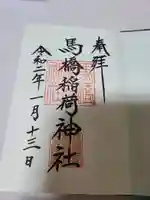 奉拝
馬橋稲荷神社
令和二年一月十三日